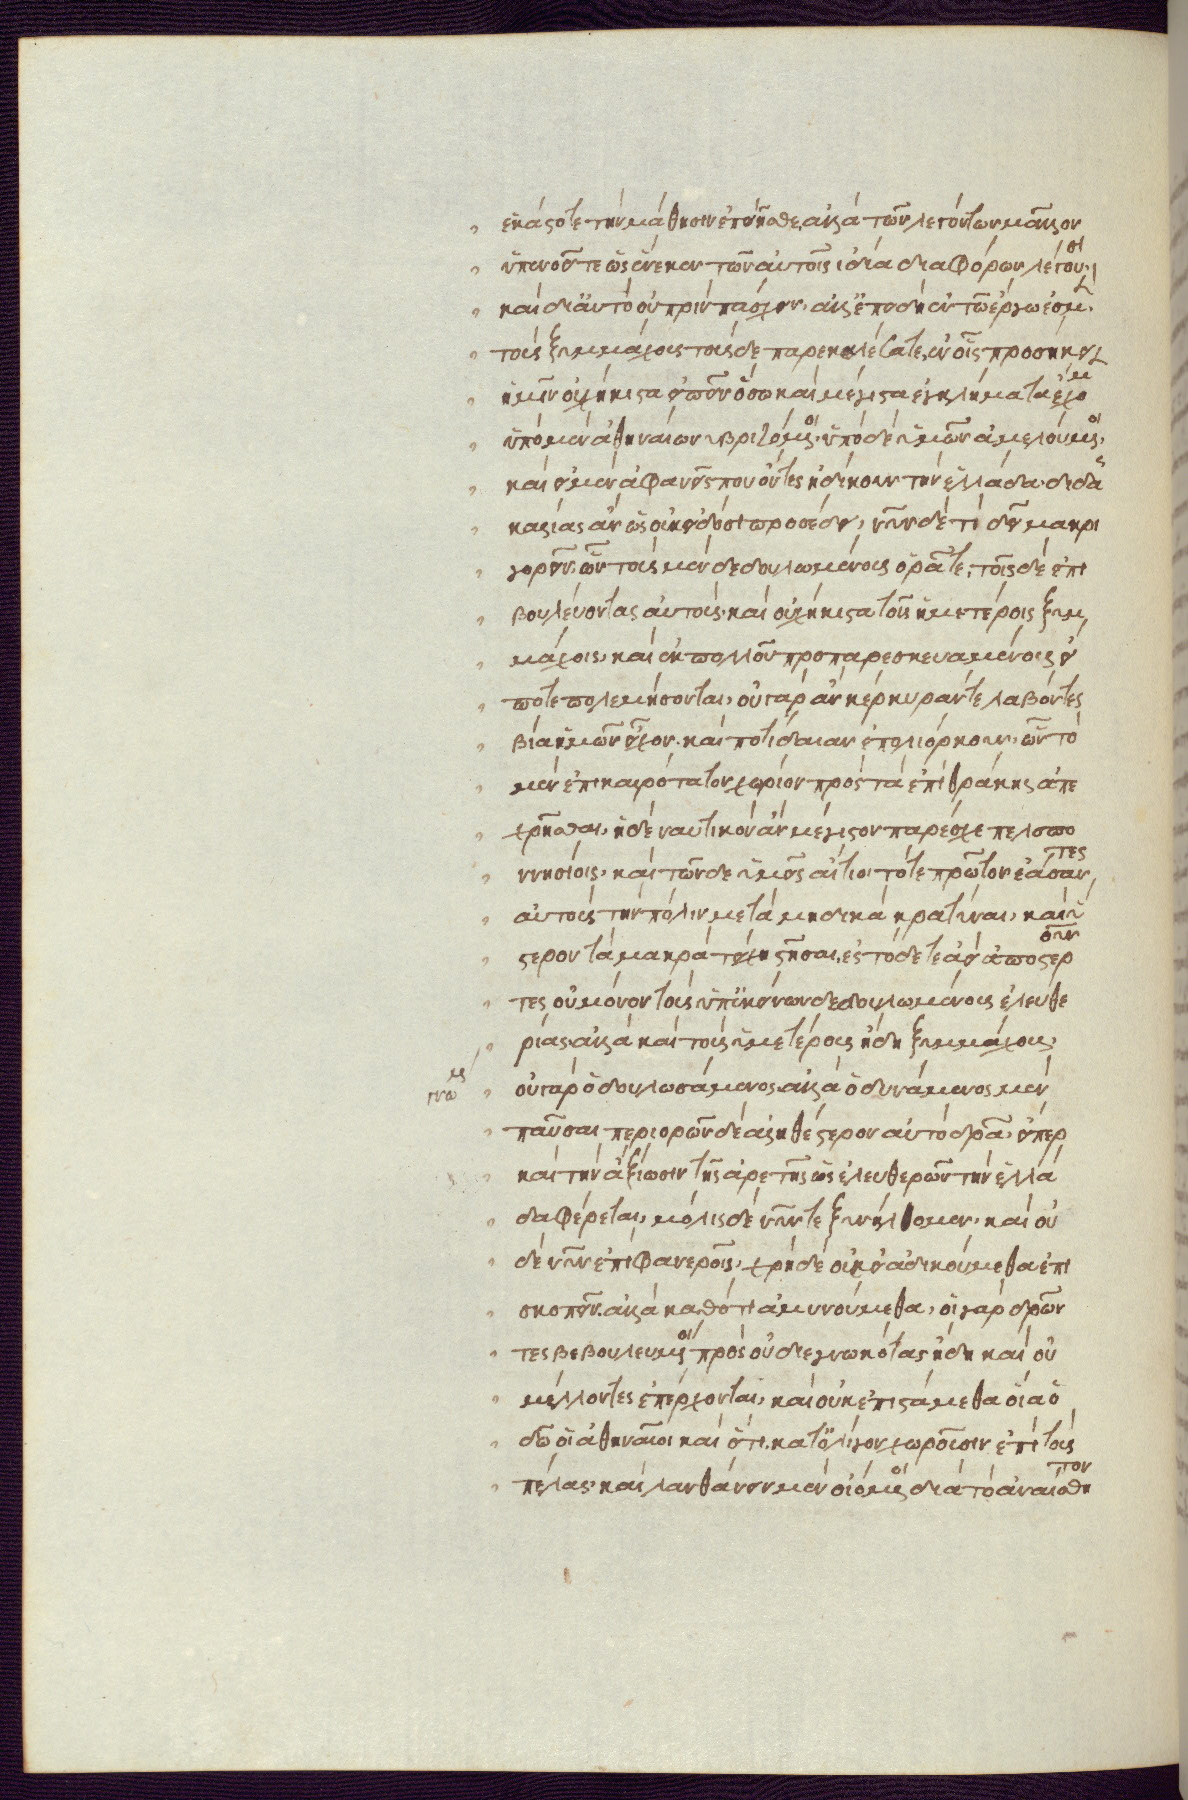 ἑκάστοτε τὴν μάθησιν ἐποιεῖσθε, ἀλλὰ τῶν λεγόντων μᾶλλον
ὑπενοεῖτε ὡς ἕνεκεν τῶν αὐτοῖς ἰδία διαφόρων λέγουσι,
καὶ δι' αὐτὸ οὐ πρὶν πάσχειν, ἀλλ' ἐπειδὴ ἐν τῶ ἔργω ἐσμὲν.
τοὺς ξυμμάχους τούσδε παρεκαλέσατε, ἐν οἷς προσήκει
ἡμῖν οὐχ ἥκιστα εἰπεῖν ὅσω καὶ μέγιστα ἐγκλήματα ἔχομεν
ὑπὸ μὲν ἀθηναίων ὑβριζόμενοι· ὑπὸ δὲ ὑμῶν ἀμελούμενοι.
καὶ εἰ μὲν ἀφανεῖς που ὄντες ἠδίκουν τὴν ἑλλάδα· διδασ
καλίας ἂν ὡς οὐκ εἰδόσι προσέδει, νῦν δὲ τί δεῖ μακρη
γορεῖν. ὧν τοὺς μὲν δεδουλωμένους ὁρᾶτε, τοῖς δὲ ἐπι
βουλεύοντας αὐτοὺς· καὶ οὐχ ἥκιστα τοῖς ἡμετέροις ξυμ
μάχοις, καὶ ἐκ πολλοῦ προπαρεσκευασμένους εἴ
ποτε πολεμήσονται, οὐ γὰρ ἂν κέρκυράν τε λαβόντες
βία ἡμῶν εἶχον· καὶ ποτίδαιαν ἐπολιόρκουν, ὧν τὸ
μὲν ἐπικαιρότατον χωρίον πρὸς τὰ ἐπὶ θράκης ἀπο
χρῆσθαι, ἡ δὲ ναυτικὸν ἂν μέγιστον παρέσχε πελοπο
ννησίοις· καὶ τῶνδε ὑμεῖς αἴτιοι τό τε πρῶτον ἐάσαντες
αὐτοὺς τὴν πόλιν μετὰ μηδικὰ κρατῦναι, καὶ ὕ
στερον τὰ μακρὰ τείχη στῆσαι, ἐς τόδε τε ἀεὶ ἀποστεροῦν
τες οὐ μόνον τοὺς ὑπ' ἐκείνων δεδουλωμένους ἐλευθε
ρίας· ἀλλὰ καὶ τοὺς ὑμετέρους ἤδη ξυμμάχους,
γνώμη
οὐ γὰρ ὁ δουλωσάμενος· ἀλλὰ ὁ δυνάμενος μὲν
παῦσαι περιορῶν δὲ ἀληθέστερον αὐτὸ δρᾶ· εἴπερ
καὶ τὴν ἀξίωσιν τῆς ἀρετῆς ὡς ἐλευθερῶν τὴν ἑλλά
δα φέρεται, μόλις δὲ νῦν τε ξυνήλθομεν, καὶ οὐ
δὲ νῦν ἐπὶ φανεροῖς, χρὴ δὲ οὐκ εἰ ἀδικούμεθα ἔτι
σκοπεῖν. ἀλλὰ καθότι ἀμυνούμεθα, οἱ γὰρ δρῶν
τες βεβουλευμένοι πρὸς οὐ διεγνωκότας ἤδη καὶ οὐ
μέλλοντες ἐπέρχονται, καὶ οὐκ ἐπιστάμεθα οἵα ὁ
δῶ οἱ ἀθηναῖοι καὶ ὅτι κατ' ὀλίγον χωροῦσιν ἐπὶ τοὺς
πέλας· καὶ λανθάνειν μὲν οἰόμενοι διὰ τὸ ἀναίσθητον